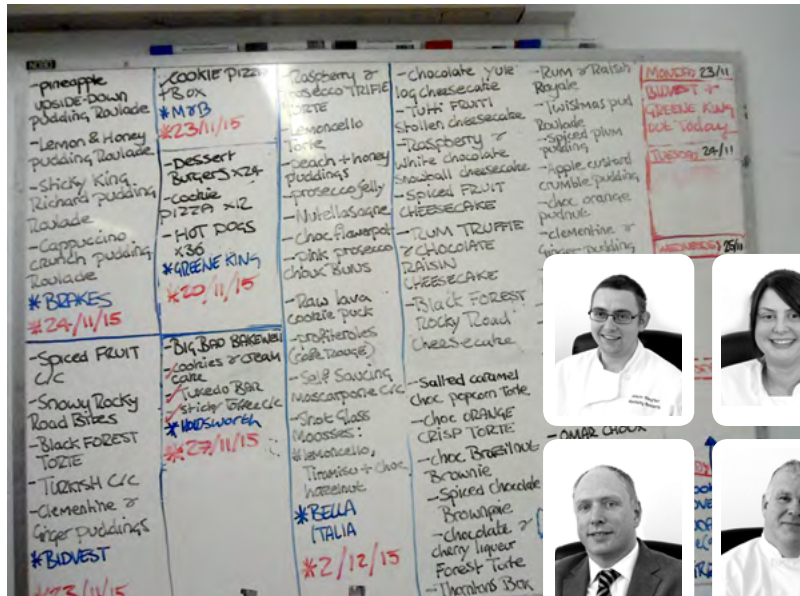 NOBO
-pineapple
upside-down
pudding Roulade
-Lemon & Honey
pudding Roulade
-Sticky King
Richard pudding
Roulade
-Cappuccino
crunch pudding
Roulade
*BRAKES
*24/11/15
-Spiced FRUIT
C/C
-Snowy Rocky
Road Bites
-Black FOREST
TORTE
-TURKISH C/C
-Clementine &
Ginger puddings
*BIDVEST
*23/11/15
-COOKIE PIZZA
+BOX
*M&B
*23/11/15
-Dessert
Burgers x24
-Cookie
PIZZA x12
-HOT DOGS
x36
*GREENE KING
*20/11/15
-BIG BAD BAKEWELL
cookies & cream
cake
Tuxedo BAR
sticky Toffee C/C
*HOLDSWORTH
*27/11/15
-Raspberry &
prosecco TRIFLE
TORTE
-Lemoncello
Torte
-peach + honey
puddings
-prosecco jelly
-Nutellasagne
-choc flowerpot
-Pink prosecco
choux Buns
-Raw lava
cookie puck
-profiteroles
(CAFÉ ROUGE)
-Self Saucing
Mascarpone C/C
-Shot Glass
Moosses:
*lemoncello,
Tiramisu + choc
hazelnut
*BELLA
ITALIA
*2/12/15
-Chocolate yule
log cheesecake
-Tutti FRUTI
Stollen cheesecake
-Raspberry &
white chocolate
Snowball cheesecake
-Spiced FRUIT
CHEESECAKE
-RUM TRUFFLE
& CHOCOLATE
RAISIN
CHEESECAKE
-Black FOREST
Rocky Road
Cheesecake
-Salted caramel
choc popcorn Torte
-choc ORANGE
CRISP TORTE
-choc Brazilnut
Brownie
-Spiced chocolate
Brownpie
-chocolate &
cherry liqueur
Forest Torte
-Thorntons Box
-Rum & Raisin
Royale
-Twistmas pud
Roulade
-Spiced plum
pudding
-Apple custard
crumble pudding
-choc orange
pudnut
-clementine &
Ginger pudding
-OMAR CHOUX
MONDAY 23/11
BIDVEST +
GREENE KING
OUT Today
TUESDAY 24/11
WEDNESDAY 25/11